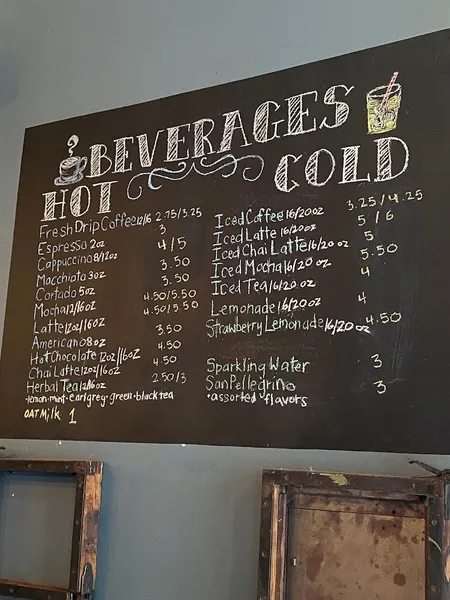 BEVERAGES
HOT
Fresh Drip Coffee 12/16 2.75/3.25
Espresso 2oz 3
Cappuccino 8/12oz 4/5
Macchioto 3oz 3.50
Cortado 5oz 3.50
Mocha 12/16oz 4.50/5.50
Latte 12oz/16oz 4.50/5.50
Americano 8oz 3.50
Hot Chocolate 12oz/16oz 4.50
Chai Latte 12oz/16oz 4.50
Herbal Tea 12/16oz 2.50/3
•lemon•mint•earl grey•green•black tea
OAT Milk 1
COLD
Iced Coffee 16/20oz 3.25/4.25
Iced Latte 16/20oz 5/6
Iced Chai Latte 16/20oz 5
Iced Mocha 16/20oz 5.50
Iced Tea 16/20oz 4
Lemonade 16/20oz 4
Strawberry Lemonade 16/20oz 4.50
Sparkling Water 3
San Pellegrino 3
•assorted flavors